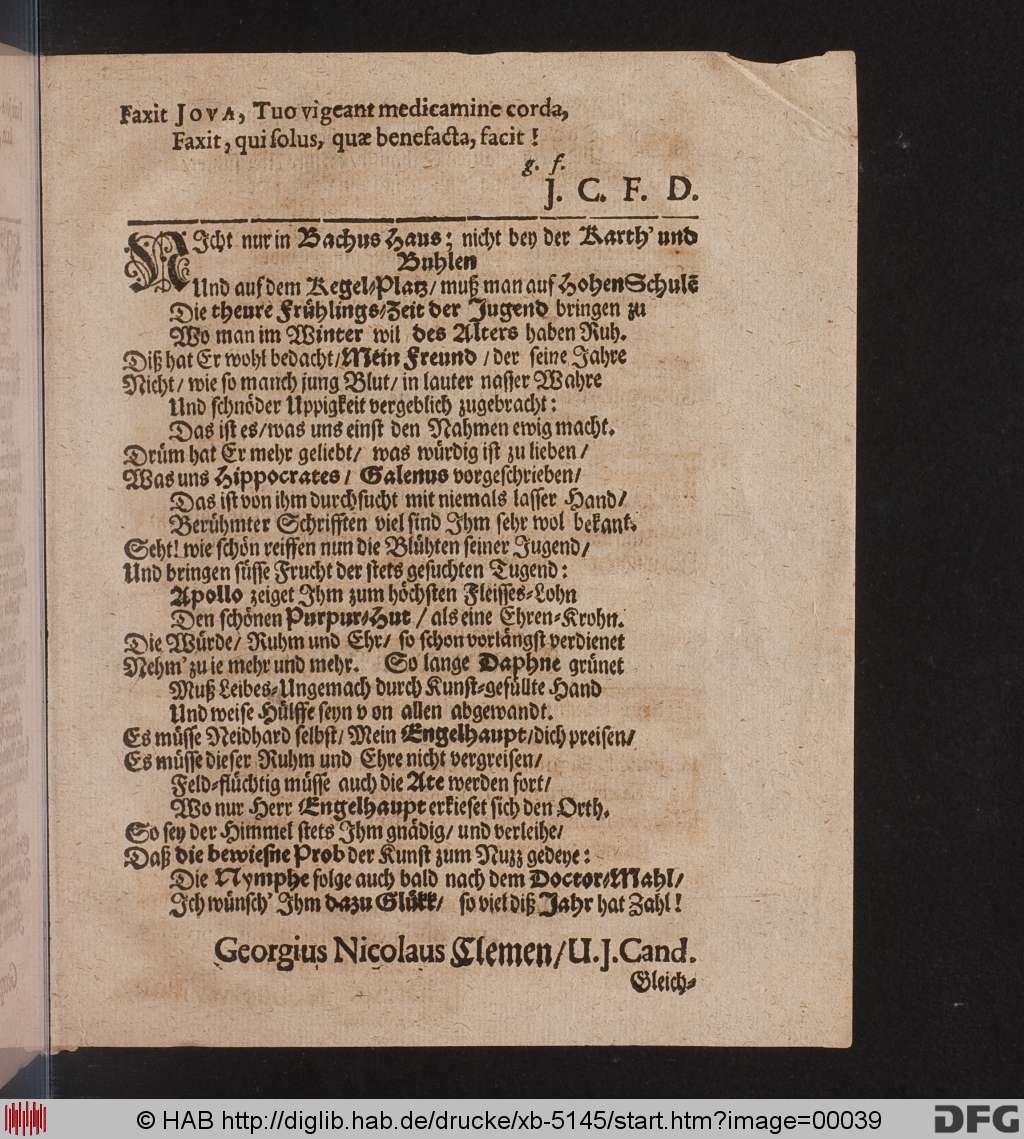 Faxit JOVA, Tuo vigeant medicamine corda,
Faxit, qui solus, quæ benefacta, facit!
g. f.
J. C. F. D.
NIcht nur in Bachus Haus; nicht bey der Karth' und
Buhlen
Und auf dem Kegel-Platz/ muß man auf HohenSchulē
Die theure Frühlings-Zeit der Jugend bringen zu
Wo man im Winter wil des Alters haben Ruh.
Diß hat Er wohl bedacht/Mein Freund/der seine Jahre
Nicht/ wie so manch jung Blut/ in lauter nasser Wahre
Und schnöder Uppigkeit vergeblich zugebracht:
Das ist es/was uns einst den Nahmen ewig macht.
Drüm hat Er mehr geliebt/ was würdig ist zu lieben/
Was uns Hippocrates/ Galenus vorgeschrieben/
Das ist von ihm durchsucht mit niemals lasser Hand/
Berühmter Schrifften viel sind Ihm sehr wol bekant.
Seht! wie schön reiffen nun die Blühten seiner Jugend/
Und bringen süsse Frucht der stets gesuchten Tugend:
Apollo zeiget Ihm zum höchsten Fleisses-Lohn
Den schönen Purpur-Hut/ als eine Ehren-Krohn.
Die Würde/ Ruhm und Ehr/ so schon vorlängst verdienet
Nehm' zu ie mehr und mehr. So lange Daphne grünet
Muß Leibes-Ungemach durch Kunst-gefüllte Hand
Und weise Hülffe seyn von allen abgewandt.
Es müsse Neidhard selbst/ Mein Engelhaupt/dich preisen/
Es müsse dieser Ruhm und Ehre nicht vergreisen/
Feld-flüchtig müsse auch die Ate werden fort/
Wo nur Herr Engelhaupt erkieset sich den Orth.
So sey der Himmel stets Ihm gnädig/ und verleihe/
Daß die bewiesne Prob der Kunst zum Nuzz gedeye:
Die Nymphe folge auch bald nach dem Doctor-Mahl/
Ich wünsch' Ihm dazu Glükk/ so viel diß Jahr hat Zahl!
Georgius Nicolaus Clemen/U.J.Cand.
Gleich-
© HAB http://diglib.hab.de/drucke/xb-5145/start.htm?image=00039
DFG